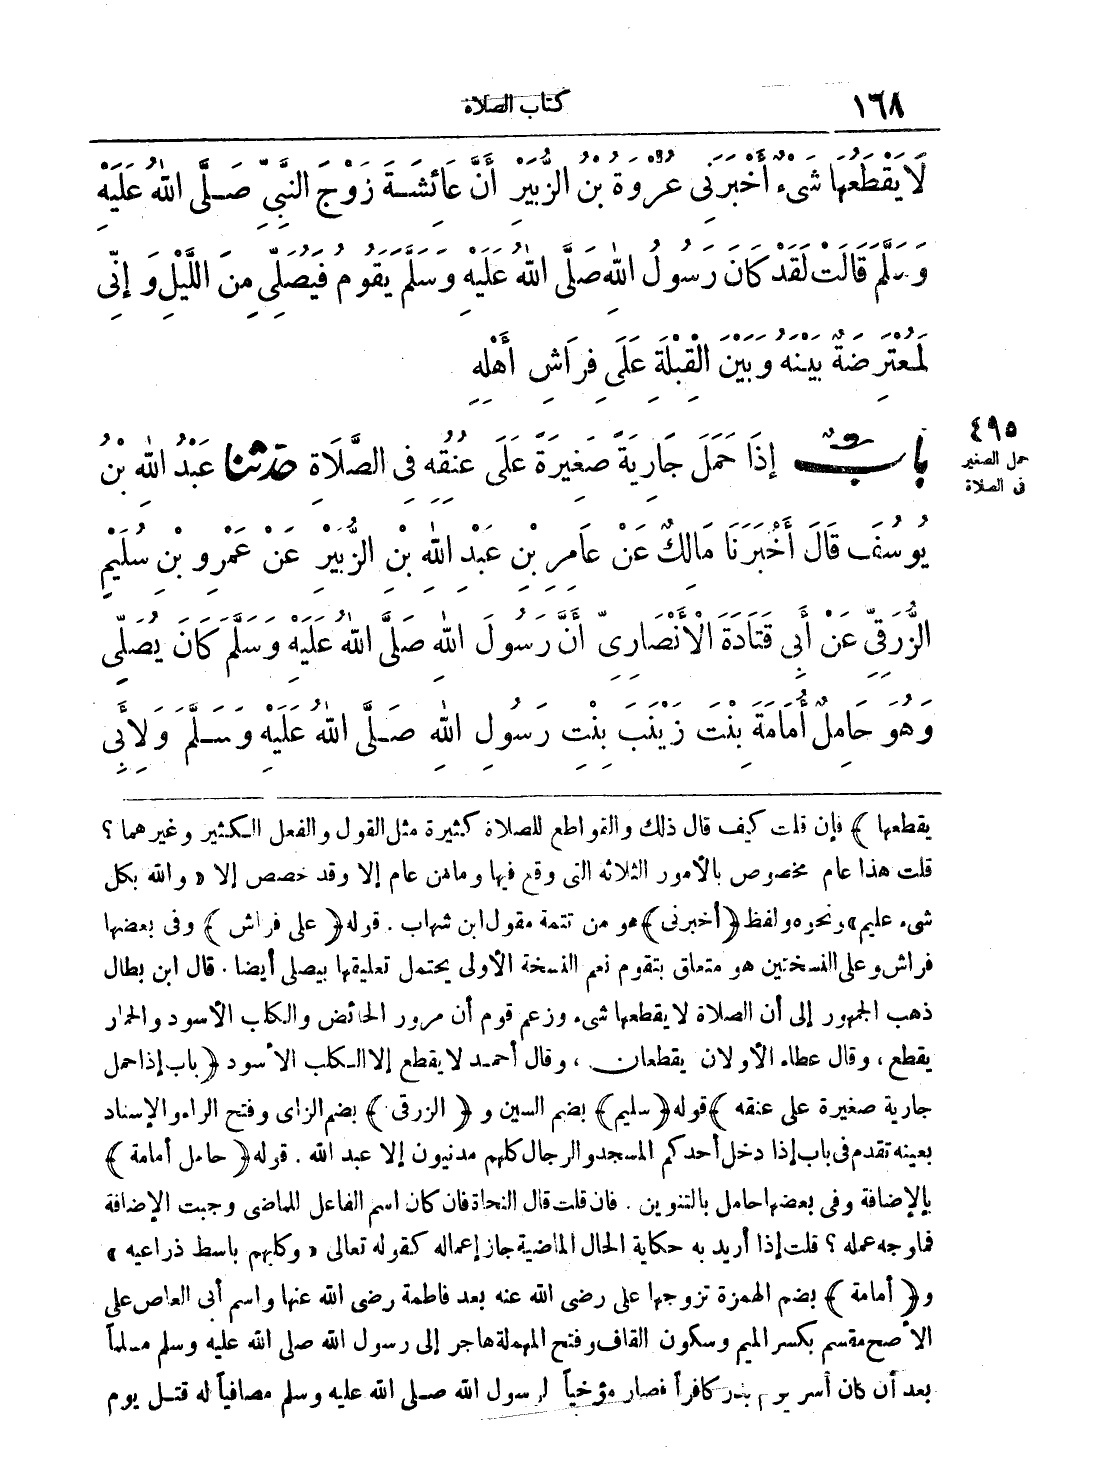 ١٦٨
كتاب الصلاة
لَا يَقْطَعُهَا شَىْءٌ أَخْبَرَنِى عُرْوَةُ بْنُ الزُّبَيْرِ أَنَّ عَائِشَةَ زَوْجَ النَّبِيِّ صَلَّى اللهُ عَلَيْهِ
وَسَلَّمَ قَالَتْ لَقَدْ كَانَ رَسُولُ اللهِ صَلَّى اللهُ عَلَيْهِ وَسَلَّمَ يَقُومُ فَيُصَلِّي مِنَ اللَّيْلِ وَإِنِّى
لَمُعْتَرِضَةٌ بَيْنَهُ وَبَيْنَ الْقِبْلَةِ عَلَى فِرَاشِ أَهْلِهِ
٤٩٥
حمل الصغير
فى الصلاة
بابٌ إِذَا حَمَلَ جَارِيَةً صَغِيرَةً عَلَى عُنُقِهِ فِى الصَّلَاةِ حَدَّثَنَا عَبْدُ اللهِ بْنُ
يُوسُفَ قَالَ أَخْبَرَنَا مَالِكٌ عَنْ عَامِرِ بْنِ عَبْدِ اللهِ بْنِ الزُّبَيْرِ عَنْ عَمْرِو بْنِ سُلَيْمٍ
الزُّرَقِيِّ عَنْ أَبِى قَتَادَةَ الْأَنْصَارِىِّ أَنَّ رَسُولَ اللهِ صَلَّى اللهُ عَلَيْهِ وَسَلَّمَ كَانَ يُصَلِّي
وَهُوَ حَامِلٌ أُمَامَةَ بِنْتَ زَيْنَبَ بِنْتِ رَسُولِ اللهِ صَلَّى اللهُ عَلَيْهِ وَسَلَّمَ وَلِأَبِى
يقطعها ﴾ فإن قلت كيف قال ذلك والقواطع للصلاة كثيرة مثل القول والفعل الكثير وغيرهما ؟
قلت هذا عام مخصوص بالأمور الثلاثه التى وقع فيها وما من عام إلا وقد خصص إلا « والله بكل
شىء عليم » ونحوه ولفظ ﴿ أخبرنى ﴾ هو من تتمة مقول ابن شهاب . قوله ﴿ على فراش ﴾ وفى بعضها
فراش وعلى النسختين هو متعلق بتقوم نعم النسخة الأولى يحتمل تعليقها بيصلى أيضا . قال ابن بطال
ذهب الجمهور إلى أن الصلاة لا يقطعها شىء وزعم قوم أن مرور الحائض والكلب الأسود والحمار
يقطع ، وقال عطاء الأولان يقطعان ، وقال أحمد لا يقطع إلا الكلب الأسود ﴿ باب إذا حمل
جارية صغيرة على عنقه ﴾ قوله ﴿ سليم ﴾ بضم السين و ﴿ الزرقى ﴾ بضم الزاى وفتح الراء والإسناد
بعينه تقدم فى باب إذا دخل أحدكم المسجد والرجال كلهم مدنيون إلا عبد الله . قوله ﴿ حامل أمامة ﴾
بالإضافة وفى بعضها حامل بالتنوين . فان قلت قال النحاة فان كان اسم الفاعل للماضى وجبت الإضافة
فما وجه عمله ؟ قلت إذا أريد به حكاية الحال الماضية جاز إعماله كقوله تعالى « وكلبهم باسط ذراعيه »
و ﴿ أمامة ﴾ بضم الهمزة تزوجها على رضى الله عنه بعد فاطمة رضى الله عنها واسم أبى العاص على
الأصح مقسم بكسر الميم وسكون القاف وفتح المهملة هاجر إلى رسول الله صلى الله عليه وسلم مسلماً
بعد أن كان أسر يوم بدر كافراً فصار مؤخياً لرسول الله صلى الله عليه وسلم مصافياً له قتل يوم